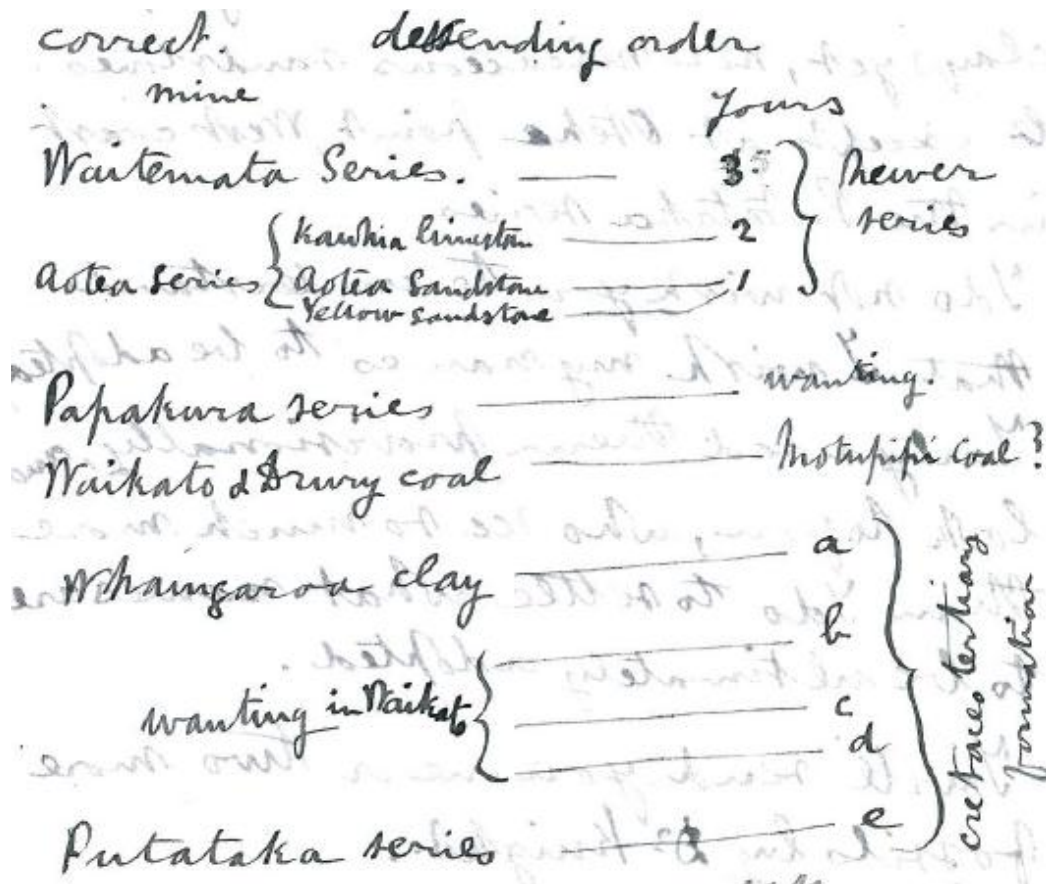 correct. descending order
mine
yours
Waitemata Series. 3. } Newer
series
Kawhia limestone 2
Aotea series { Aotea Sandstone 1
Yellow sandstone
Papakura series wanting.
Waikato & Drury coal Motupipi coal?
Whaingaroa clay a
b
wanting in Waikato { c
d
Putataka series e
cretaceo tertiary
formation